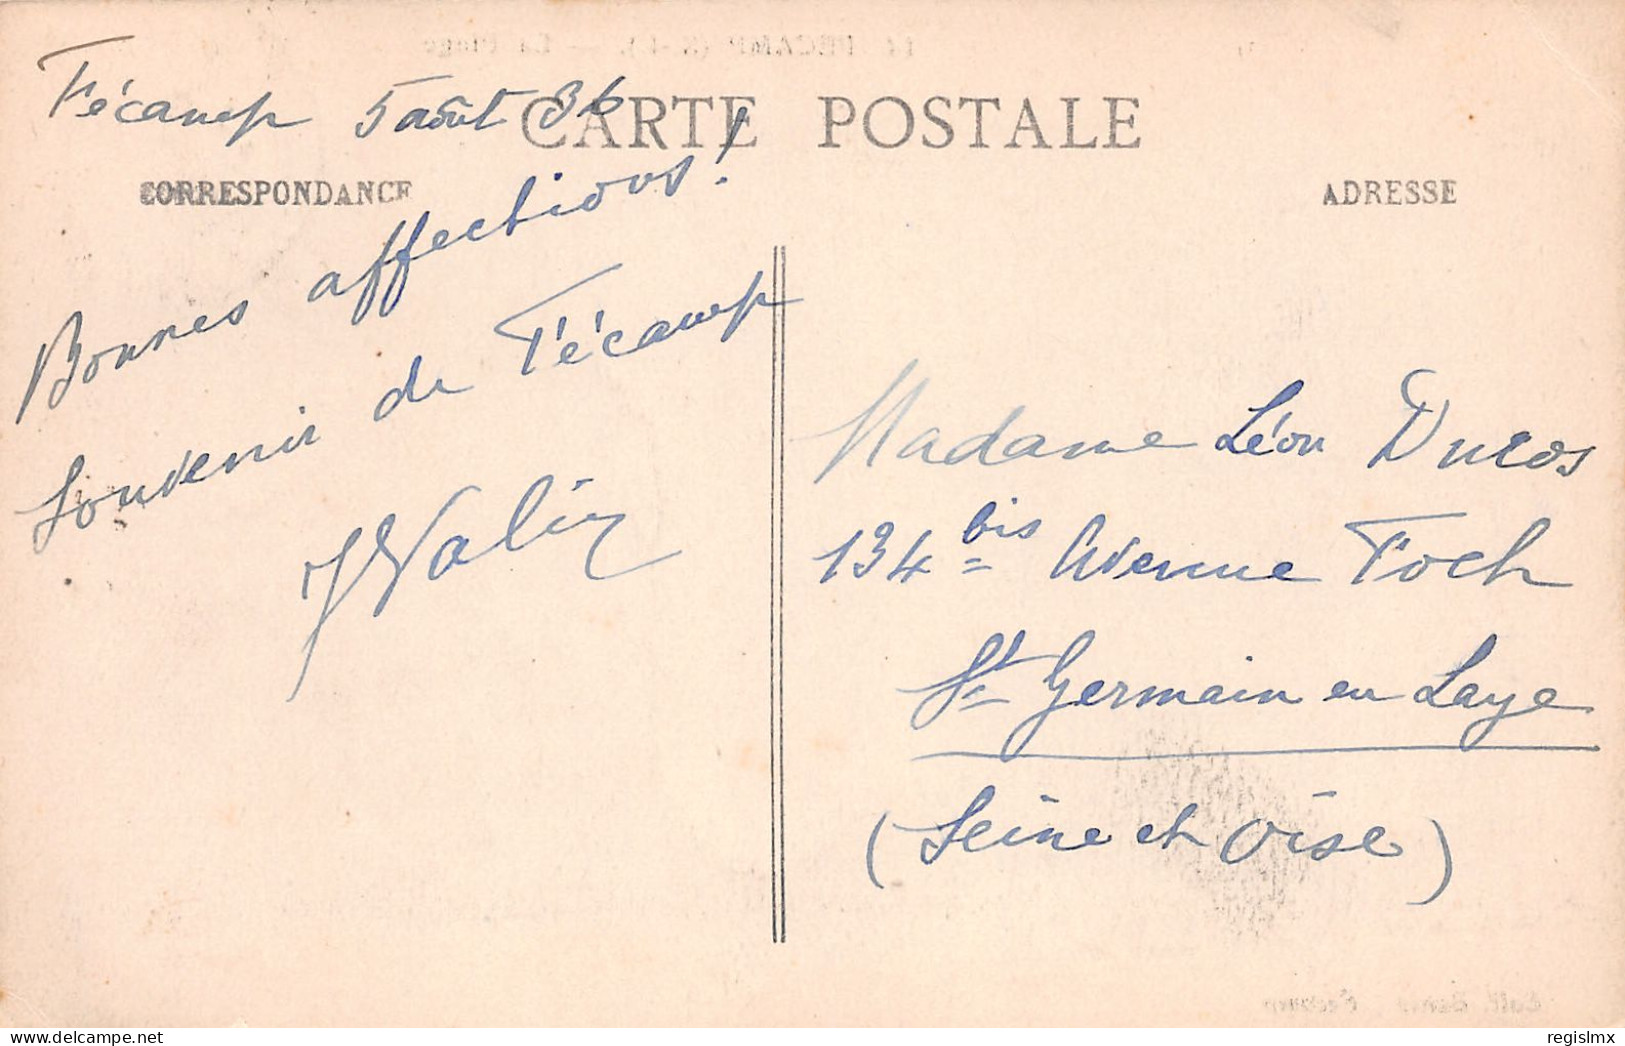 Fécamp 5 août 36
CARTE POSTALE
CORRESPONDANCE
ADRESSE
Bonnes affections !
Souvenir de Fécamp
JValin
Madame Léon Ducos
134 bis Avenue Foch
St Germain en Laye
(Seine et Oise)
regislmx